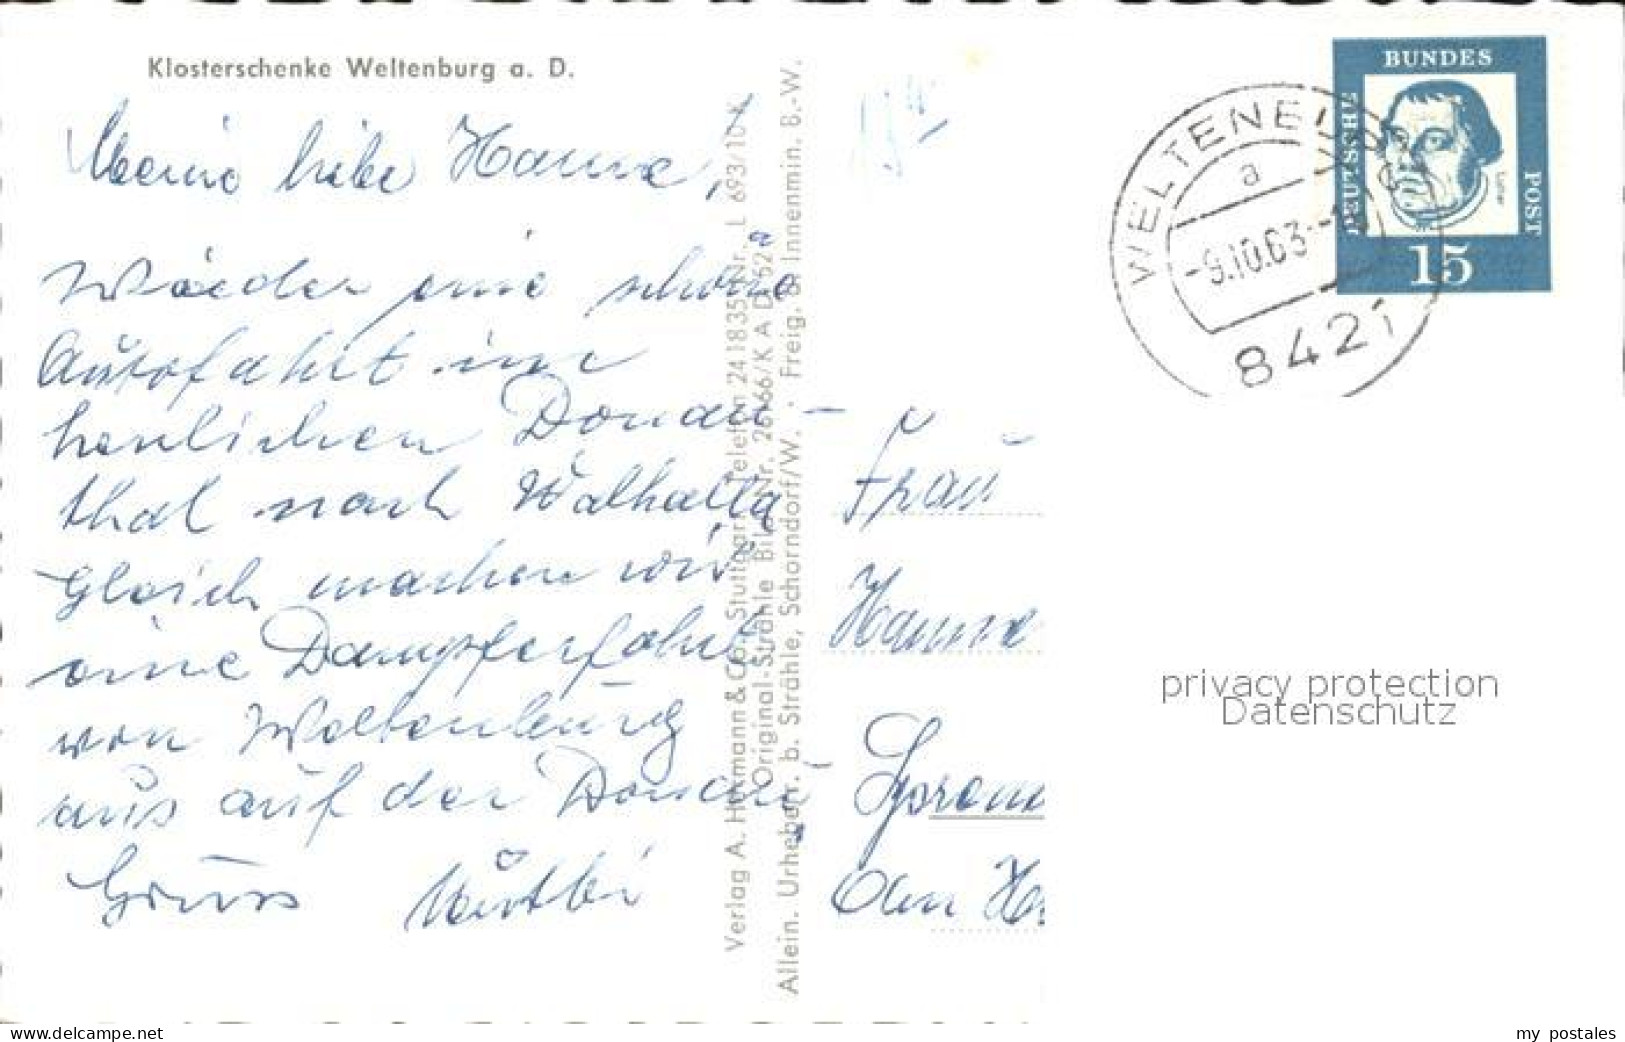 Klosterschenke Weltenburg a. D.
Meine liebe Hanne,
Wieder eine schöne
Autofahrt im
herrlichen Donau-
thal nach Walhalla
Gleich machen wir
eine Dampferfahrt
von Weltenburg
aus auf der Donau
Gruss Mutti
Verlag A. & Co., Stuttgart Telefon 241835 Nr. L 693/10 K
Original-Strähle Bild Nr. /K A D
Allein. Urheber. b. Strähle, Schorndorf/W. . Freig. d. Innenmin. B.-W.
DEUTSCHE
BUNDES
POST
Luther
15
WELTENBURG
a
-9.10.63.-
8421
Frau
Hanne
privacy protection
Datenschutz
www.delcampe.net
my_postales